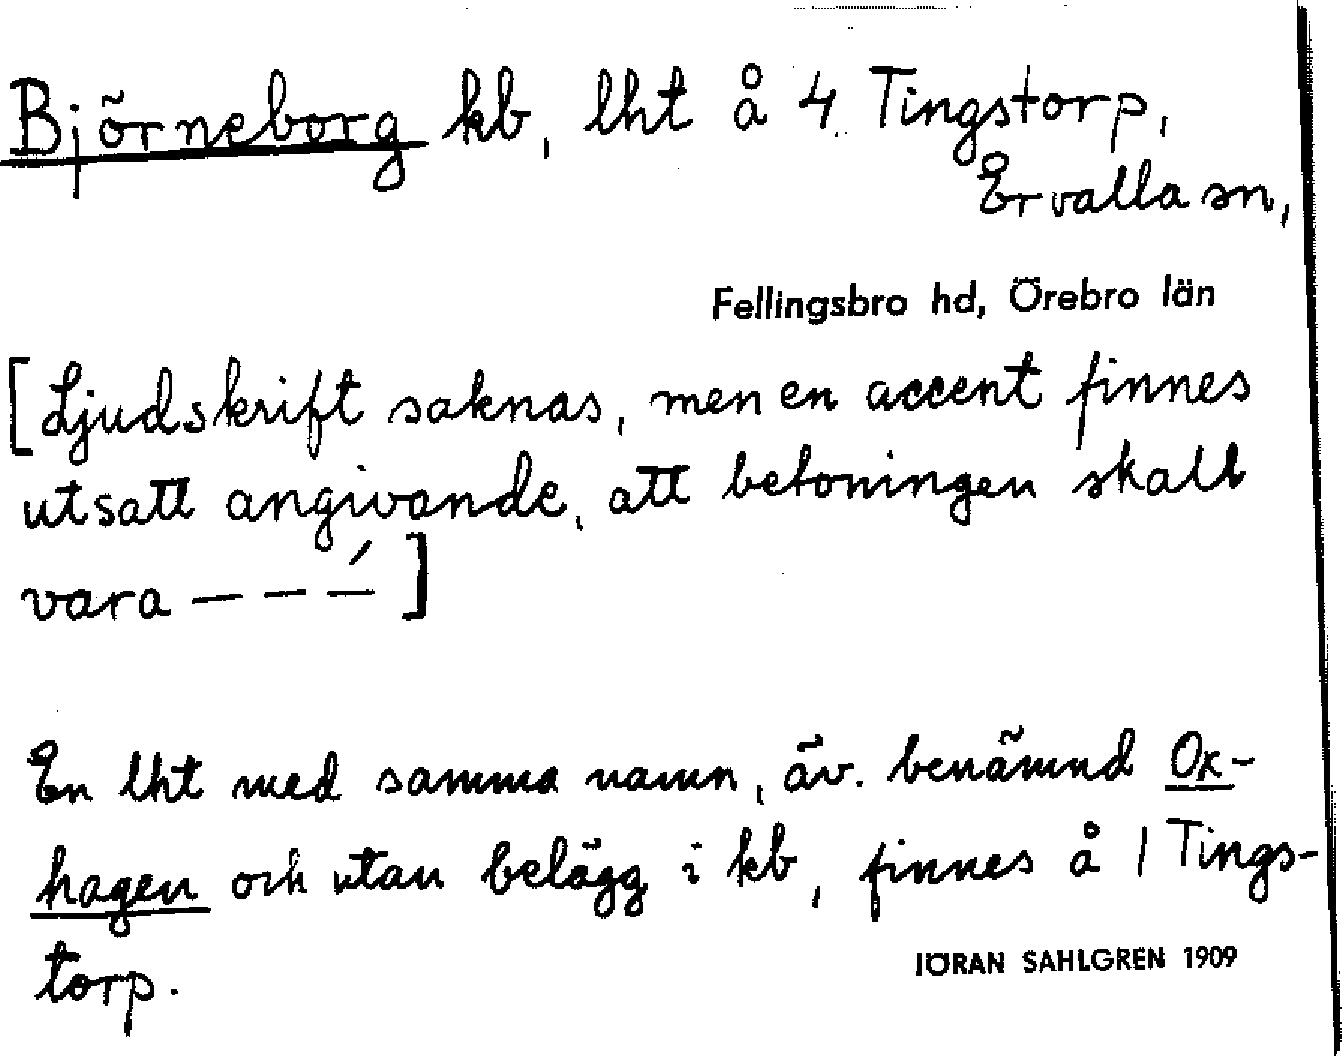 Björneborg kb, lht å 4 Tingstorp,
Ervalla sn,
Fellingsbro hd, Örebro län
[Ljudskrift saknas, men en accent finnes
utsatt angivande, att betoningen skall
vara – – –́ ]
En lht med samma namn, äv. benämnd Ox-
hagen och utan belägg i kb, finnes å 1 Tings-
torp.
JÖRAN SAHLGREN 1909